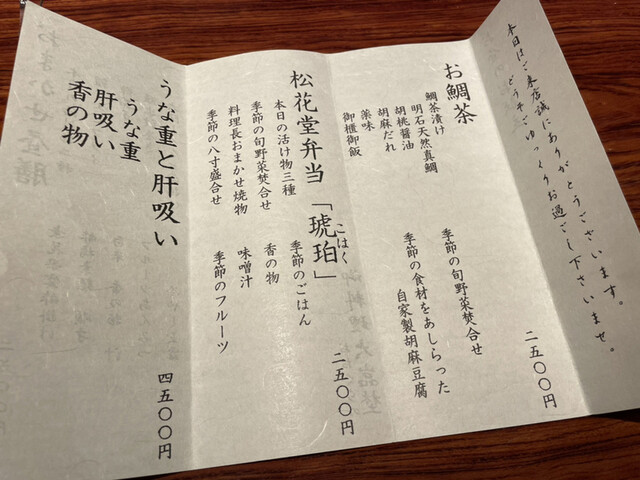 本日はご来店誠にありがとうございます。
どうぞごゆっくりお過ごし下さいませ。
お鯛茶
二五〇〇円
鯛茶漬け
明石天然真鯛
胡桃醤油
胡麻だれ
薬味
御櫃御飯
季節の旬野菜焚合せ
季節の食材をあしらった
自家製胡麻豆腐
松花堂弁当「琥珀」
こはく
二五〇〇円
本日の活け物三種
季節の旬野菜焚合せ
料理長おまかせ焼物
季節の八寸盛合せ
季節のごはん
香の物
味噌汁
季節のフルーツ
うな重と肝吸い
四五〇〇円
うな重
肝吸い
香の物